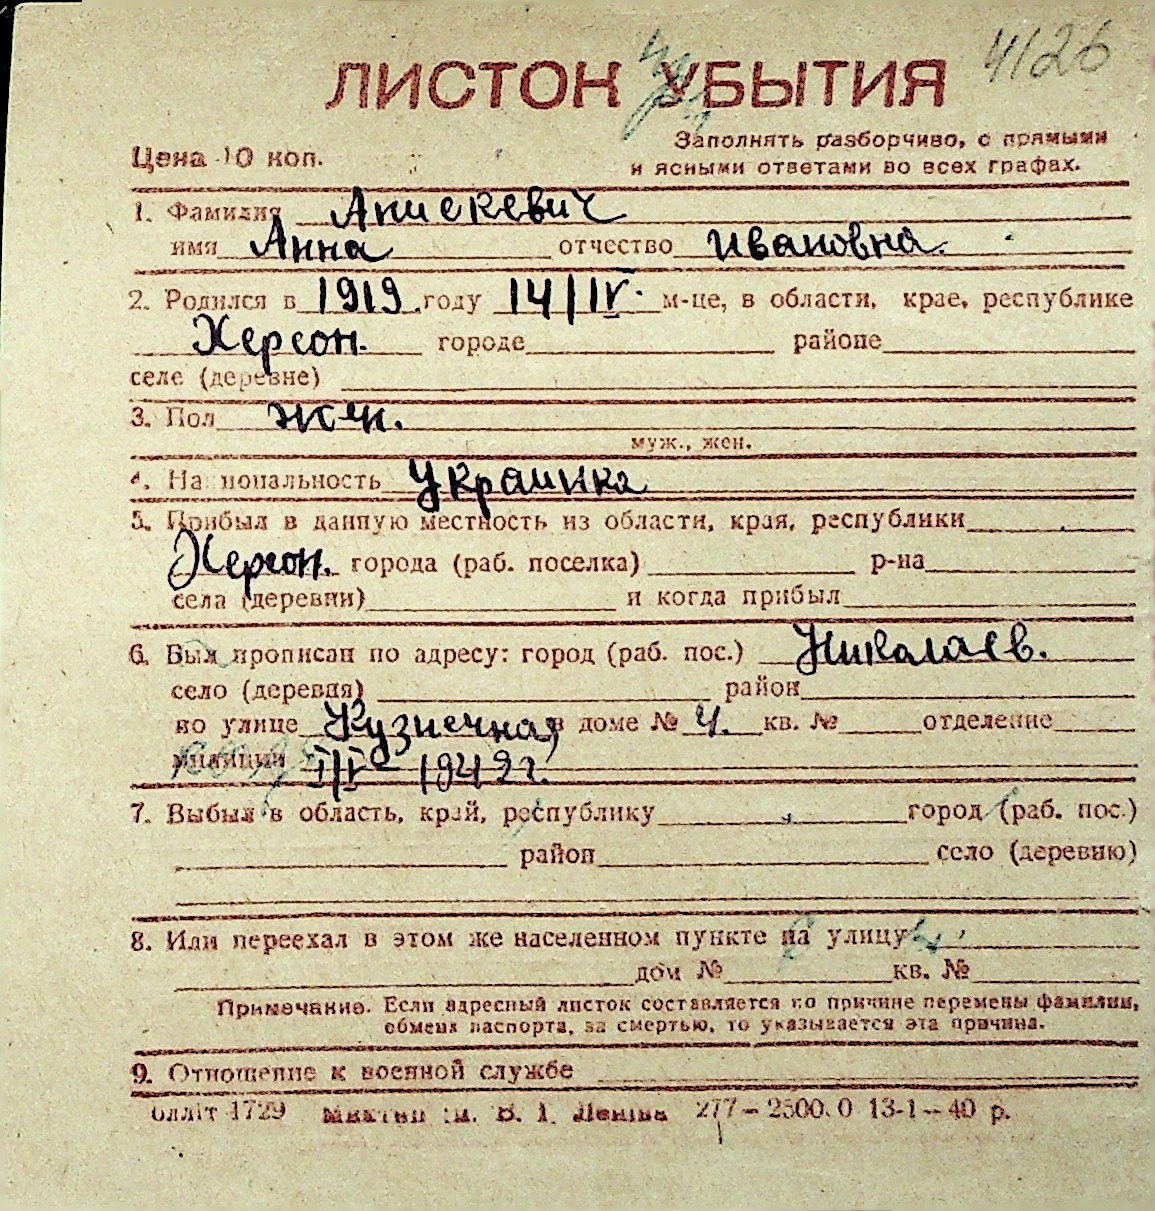 4126
ЛИСТОК УБЫТИЯ
Цена 10 коп.
Заполнять разборчиво, с прямыми
и ясными ответами во всех графах.
1. Фамилия Анискевич
имя Анна отчество Ивановна.
2. Родился в 1919. году 14/IV. м-це, в области, крае, республике
Херсон. городе районе
селе (деревне)
3. Пол жен.
муж., жен.
4. Национальность Украинка
5. Прибыл в данную местность из области, края, республики
Херсон. города (раб. поселка) р-на
села (деревни) и когда прибыл
6. Был прописан по адресу: город (раб. пос.) Николаев.
село (деревня) район
по улице Кузнечная в доме № 4. кв. № отделение
милиции I/V - 1942г.
7. Выбыл в область, край, республику город (раб. пос.)
район село (деревню)
8. Или переехал в этом же населенном пункте на улицу
дом № кв. №
Примечание. Если адресный листок составляется по причине перемены фамилии,
обмена паспорта, за смертью, то указывается эта причина.
9. Отношение к военной службе
олліт 1729 В. І. Леніна 277 – 2500.0 13-1 – 40 р.